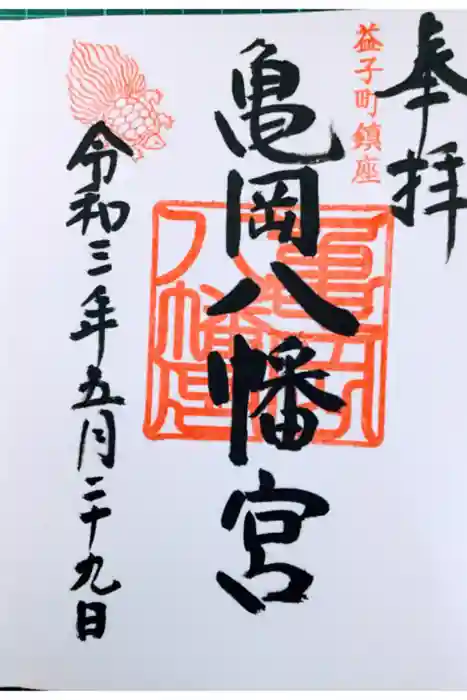 奉拝
益子町鎮座
亀岡八幡宮
令和三年五月二十九日